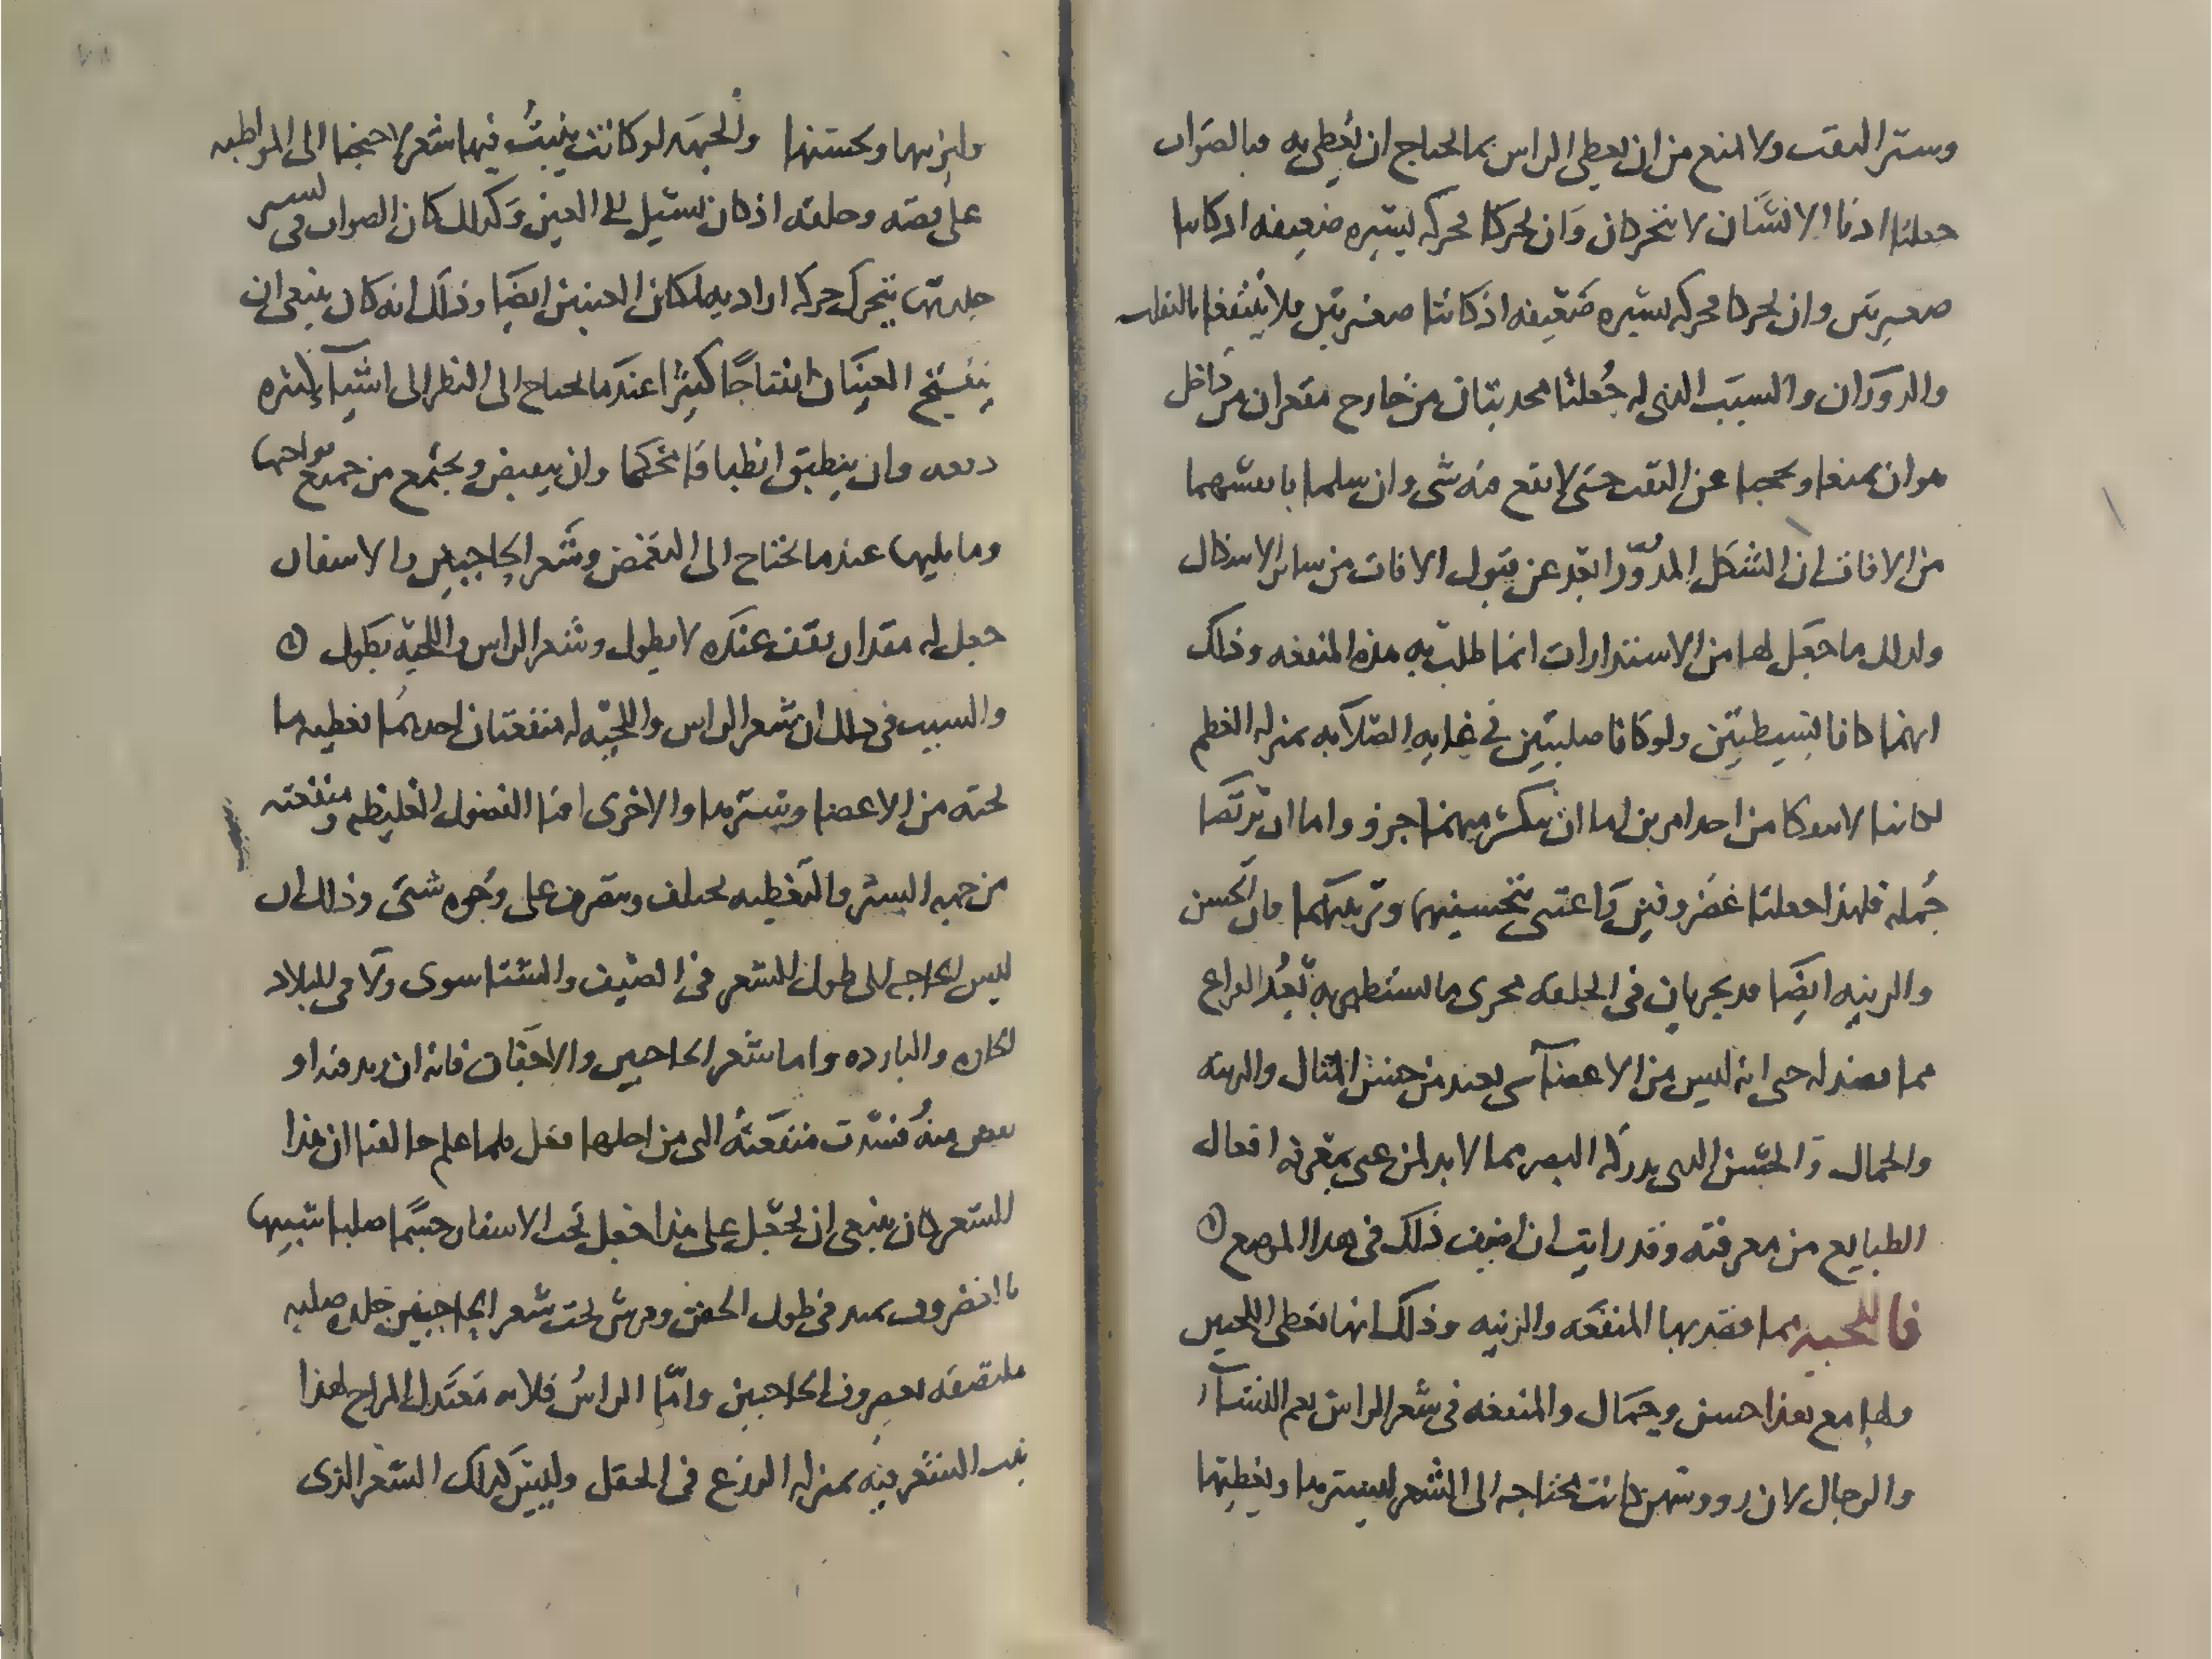 وستر الثقب ولا تمنع من ان يغطى الراس بما يحتاج ان يغطى به فبالصواب
جعلتا اذنا الانسان لا تتحركان وان تحركا فحركه يسيره ضعيفه اذ كانتا
صغيرتين وان تحركا فحركه يسيره ضعيفه اذ كانتا صغيرتين فلا ينتفعا بالتقلب
والدوران والسبب الذى له جعلتا محدبتان من خارج مقعران من داخل
هو ان يمنعا ويحجبا عن الثقب حتى لا يقع فيه شى وان يسلما بانفسهما
من الافات لان الشكل المدور ابعد عن قبول الافات من ساير الاشكال
ولذلك ما جعل لها من الاستدارات انما طلب به هذه المنفعه وذلك
انهما كانا بسيطتين ولو كانا صلبتين فى غايه الصلابه بمنزله العظم
لكانتا لا تنفكا من احد امرين اما ان ينكسر منهما جزو واما ان ترتضا
جمله فلهذا جعلتا غضروفين واعتنى بتحسينهما وتزيينهما فان الحسن
والزينه ايضا قد يجريان فى الخلقه مجرى ما يستظهر به بعد الفراغ
مما يقصد له حتى انه ليس من الاعضآ شى يعد من جنس المثال والزينه
والجمال والحسن الذى يدركه البصر مما لا بد لمن عنى بمعرفه افعال
الطبايع من معرفته وقد رايت ان اضيف ذلك فى هذا الموضع
فاللحيه مما قصد بها المنفعه والزينه وذلك انها تغطى اللحيين
ولها مع هذا حسن وجمال والمنفعه فى شعر الراس يعم النسآ
والرجال لان رووسهن كانت محتاجه الى الشعر ليسترها ويغطيها
وليزينها ويحسنها والجبهه لو كانت ينبت فيها شعر لاحتجنا الى المواظبه
على قصه وحلقه اذ كان يسيل الى العين وكذلك كان الصواب فى
جلدتها يتحرك حركه اراديه لمكان العينين ايضا وذلك انه كان ينبغى ان
ينفتح العينان انفتاحا كثيرا عندما يحتاج الى النظر الى اشيآ كثيره
دفعه وان ينطبق انطباقا محكما وان ينقبض ويجتمع من جميع نواحيها
وما يليها عندما يحتاج الى التغمض وشعر الحاجبين والاشفار
جعل له مقدار يقف عنده لا يطول وشعر الراس واللحيه يطول
والسبب فى ذلك ان شعر الراس واللحيه له منفعتان احدهما تغطيه ما
تحته من الاعضا ويسترها والاخرى افنا الفضول الغليظه ومنفعته
من جهه الستر والتغطيه يختلف ويتصرف على وجوه شتى وذلك ان
ليس الحاجه الى طول الشعر فى الصيف والشتا سوى ولا فى البلاد
الحاره والبارده واما شعر الحاجبين والاجفان فانه ان زيد فيه او
نقص منه فسدت منفعته التى من اجلها فعل فلما علم خالقنا ان هذا
الشعر كان ينبغى ان يجعل على هذا جعل تحت الاشفار جسما صلبا شبيها
بالغضروف يمتد فى طول الجفن وفرش تحت شعر الحاجبين جلده صلبه
ملتصقه بغضروف الحاجبين واما الراس فلانه معتدل المزاج لهذا
نبت الشعر فيه بمنزله الزرع فى الحقل وليس كذلك الشعر الذى